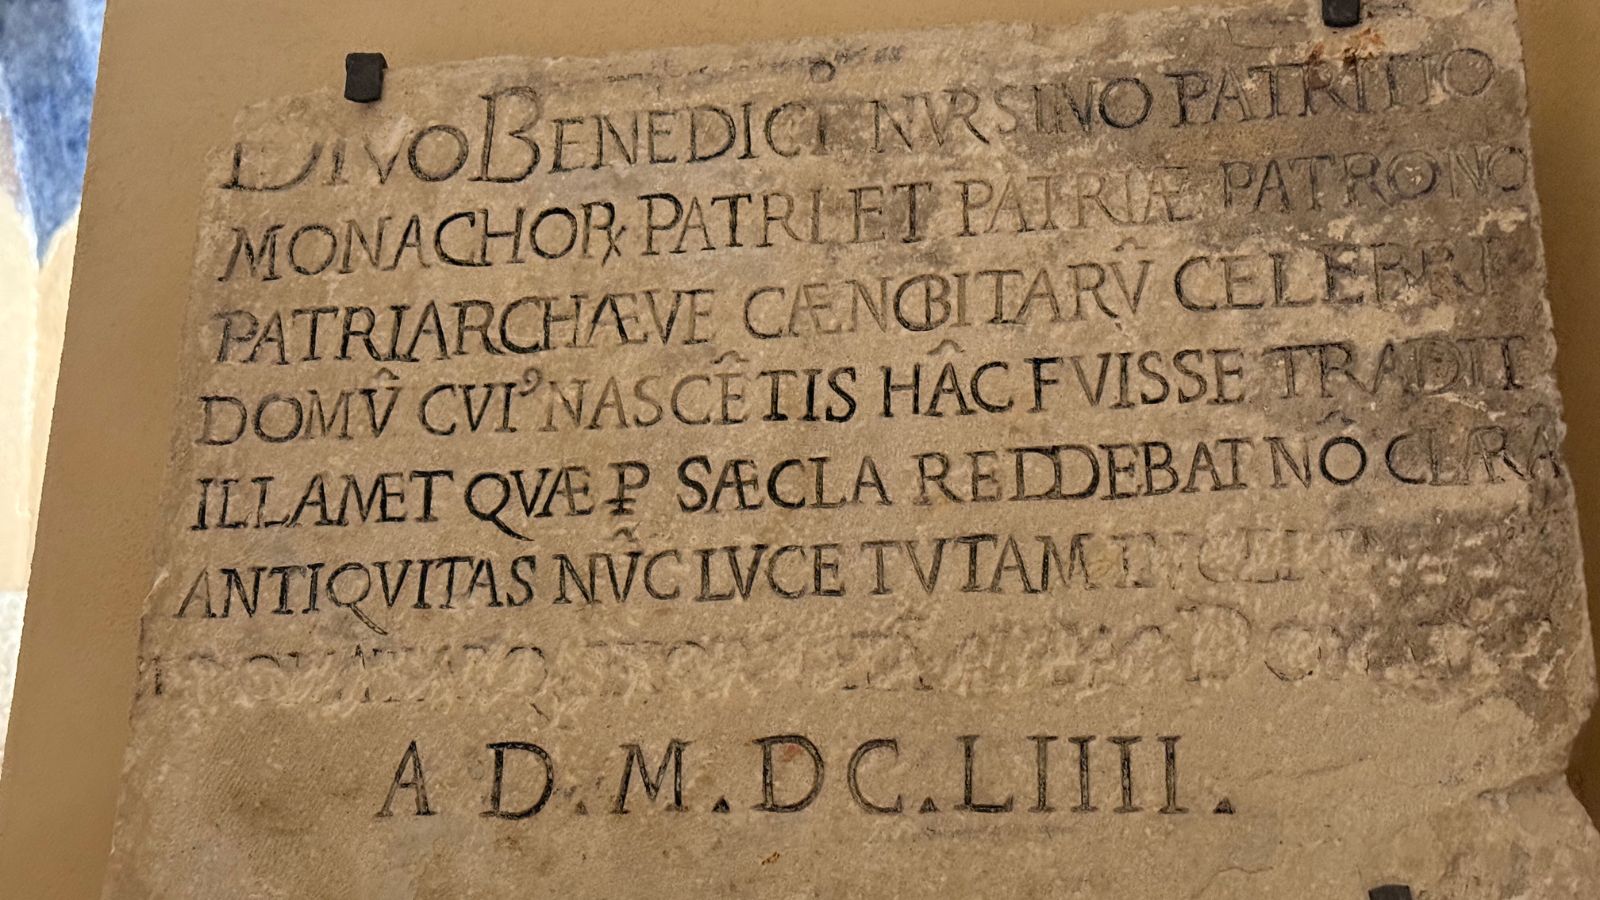 DIVO BENEDICTº NVRSINO PATRITIO
MONACHOꝜ PATRI ET PATRIÆ PATRONO
PATRIARCHÆVE CÆNOBITARV̂ CELEBRI
DOMV̂ CVIꝰ NASCÊTIS HÂC FVISSE TRADIT
ILLAMET QVÆ P̱ SÆCLA REDDEBAT NÔ CLARÂ
ANTIQVITAS NV̂C LVCE TVTAM
A D.M.DC.LIIII.